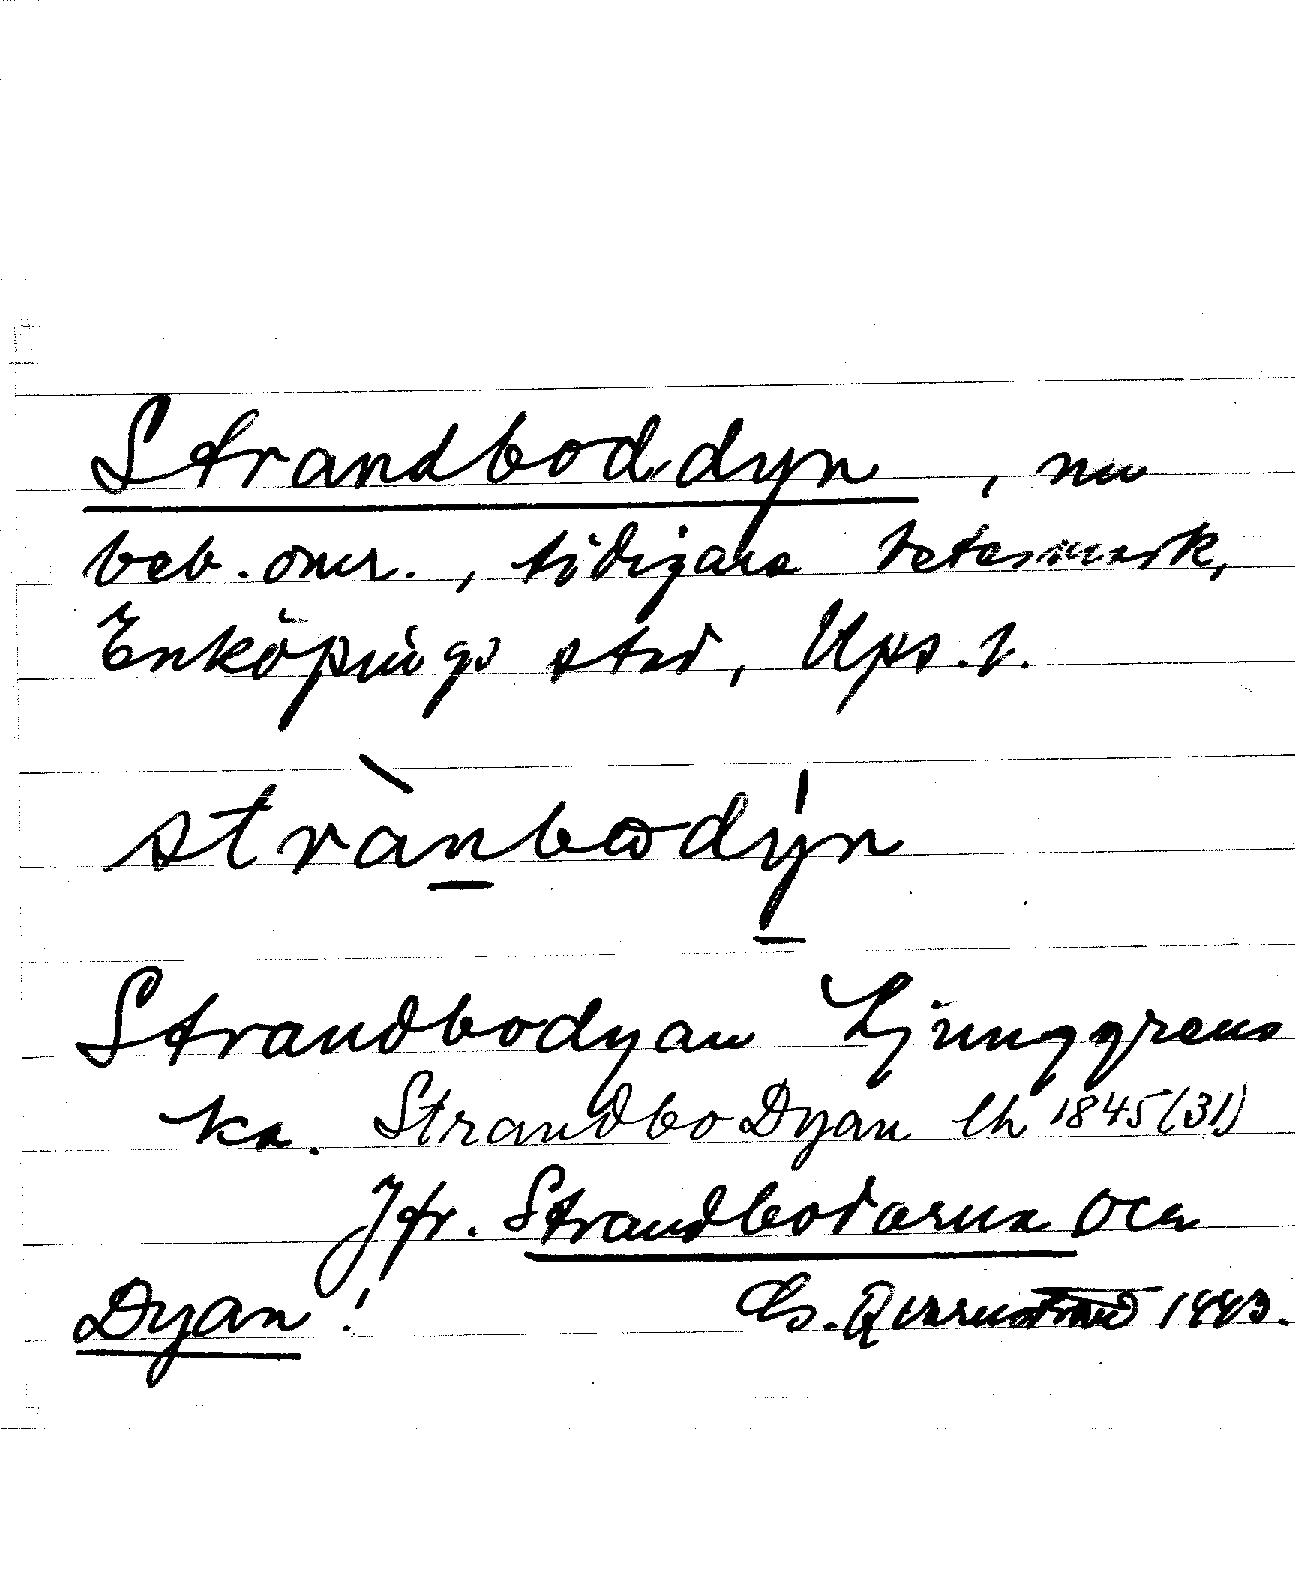 Strandboddyn, nu
beb. omr., tidigare betesmark,
Enköpings stad, Ups. l.
strànbωdýn
Strandbodyan Ljunggrens
ka. StrandboDyan lh 1845 (31)
Jfr. Strandbodarna och
Dyan!